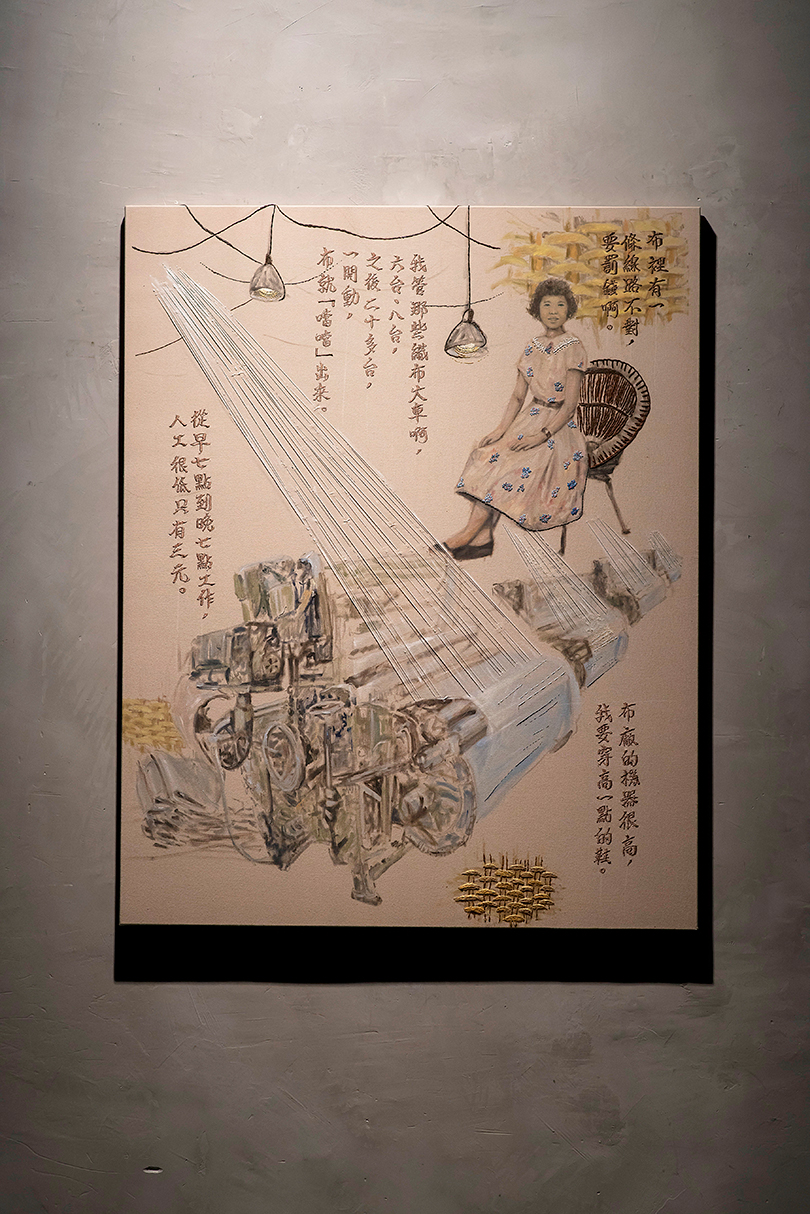 布裡有一
條線路不對，
要罰錢啊。
我管那些織布大車啊，
六台、八台，
之後二十多台，
一開動，
布就「噹噹」出来。
從早七點到晚七點工作，
人工很低只有三元。
布廠的機器很高，
我要穿高一點的鞋。